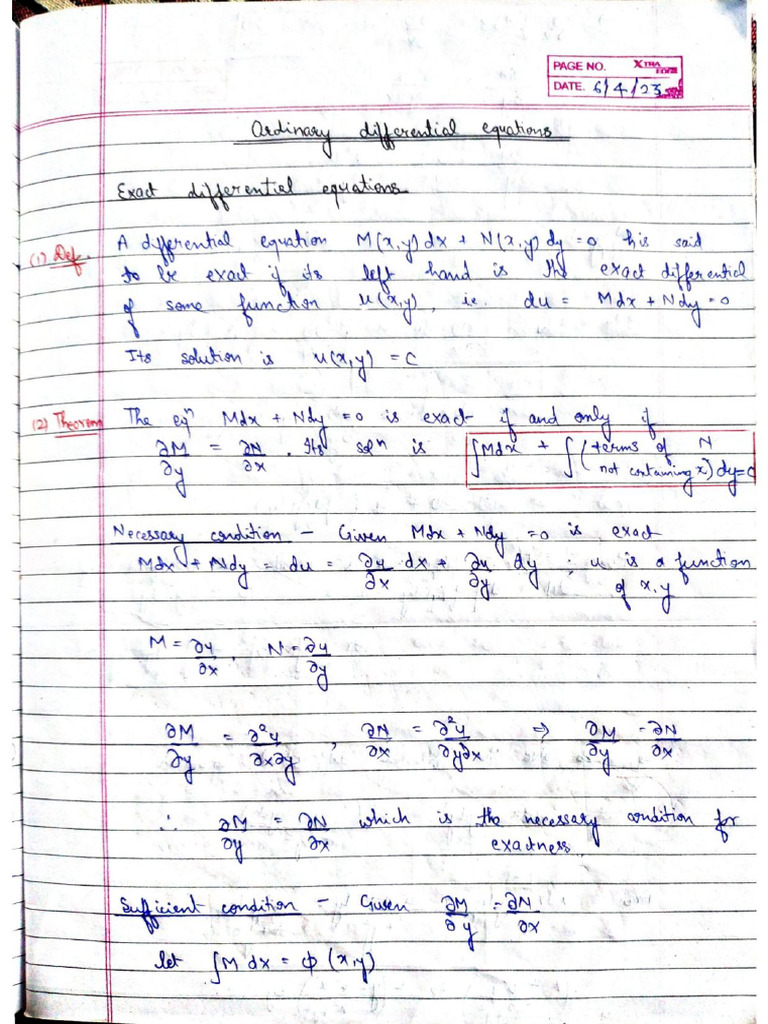 PAGE NO. XTRA EDGE
DATE. 6/4/23
Ordinary differential equations
Exact differential equations
(1) Def. A differential equation M(x,y)dx + N(x,y)dy = 0 is said
to be exact if its left hand is the exact differential
of some function u(x,y), i.e. du = Mdx + Ndy = 0
Its solution is u(x,y) = C
(2) Theorem The eqⁿ Mdx + Ndy = 0 is exact if and only if
∂M/∂y = ∂N/∂x . Its solⁿ is ∫Mdx + ∫(terms of N not containing x)dy = C
Necessary condition – Given Mdx + Ndy = 0 is exact
Mdx + Ndy = du = ∂u/∂x dx + ∂u/∂y dy ; u is a function
of x,y
M = ∂u/∂x , N = ∂u/∂y
∂M/∂y = ∂²u/∂x∂y , ∂N/∂x = ∂²u/∂y∂x ⇒ ∂M/∂y = ∂N/∂x
∴ ∂M/∂y = ∂N/∂x which is the necessary condition for
exactness
Sufficient condition – Given ∂M/∂y = ∂N/∂x
let ∫M dx = ϕ (x,y)